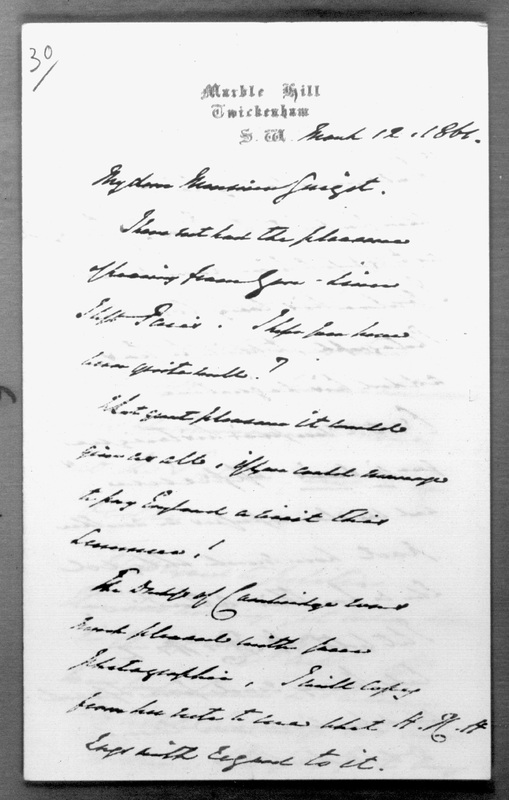 30/
Marble Hill
Twickenham
S. W. March 12. 1861.
My dear Monsieur Guizot.
I have not had the pleasure
of hearing from you since
I left Paris. I hope you have
been quite well?
What great pleasure it would
give us all, if you could manage
to pay England a visit this
Summer!
The Duchss of Cambridge was
much pleased with your
Photographie, I will copy
from her note to me what H. R. H
says with regard to it.